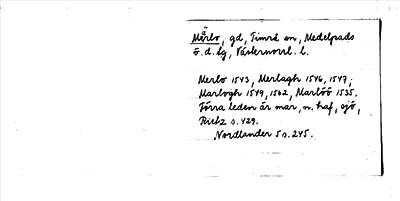 Märlo, gd, Timrå sn, Medelpads
ö. d. tg, Västernorrl. l.
Merlo 1543, Merlagh 1546, 1547;
Marlogh 1549, 1562, Marlöö 1535.
Förra leden är mar, n. haf, sjö,
Rietz s. 429.
Nordlander 5 s. 245.